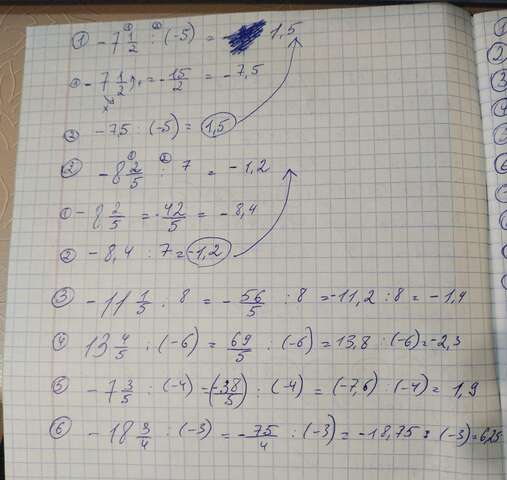 ① -7 1/2 : (-5) = 1,5
① -7 1/2 = -15/2 = -7,5
② -7,5 : (-5) = 1,5
② -8 2/5 : 7 = -1,2
① -8 2/5 = -42/5 = -8,4
② -8,4 : 7 = -1,2
③ -11 1/5 : 8 = -56/5 : 8 = -11,2 : 8 = -1,4
④ 13 4/5 : (-6) = 69/5 : (-6) = 13,8 : (-6) = -2,3
⑤ -7 3/5 : (-4) = (-38/5) : (-4) = (-7,6) : (-4) = 1,9
⑥ -18 3/4 : (-3) = -75/4 : (-3) = -18,75 : (-3) = 6,25